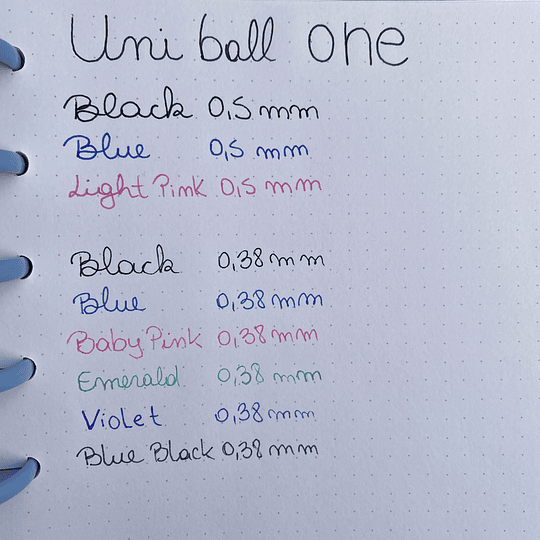 Uni ball one
Black 0,5 mm
Blue 0,5 mm
Light Pink 0,5 mm
Black 0,38 mm
Blue 0,38 mm
Baby Pink 0,38 mm
Emerald 0,38 mm
Violet 0,38 mm
Blue Black 0,38 mm